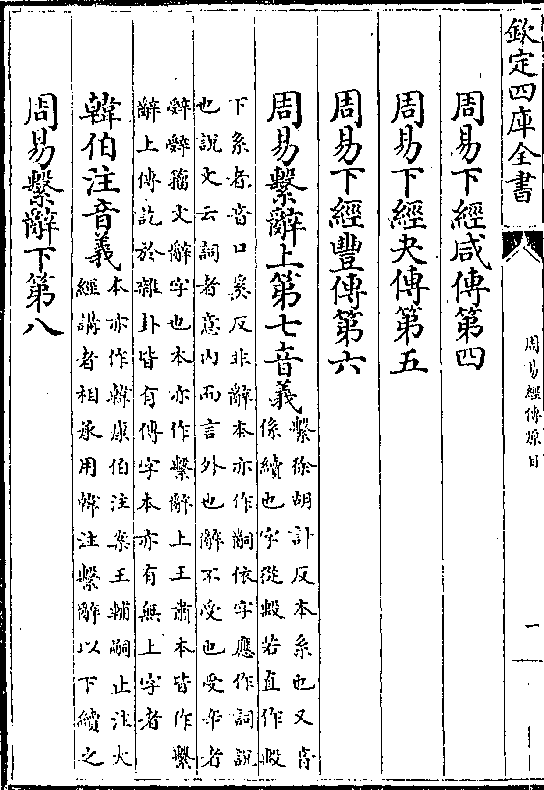 欽定四庫全書
周易經傳源目
一
周易下經咸傳第四
周易下經夬傳第五
周易下經豐傳第六
周易繫辭上第七音義
繫徐胡計反本系也又音
係續也字從毄若直作毄
下系者音口奚反非辭本亦作嗣依字應作詞說
也說文云詞者意內而言外也辭不受也受辛者
辤辤籀文辭字也本亦作繫辭上王肅本皆作繫
辭上傳訖於雜卦皆有傳字本亦有無上字者
韓伯注音義
本亦作韓康伯注案王輔嗣止注大
經講者相承用韓注繫辭以下續之
周易繫辭下第八